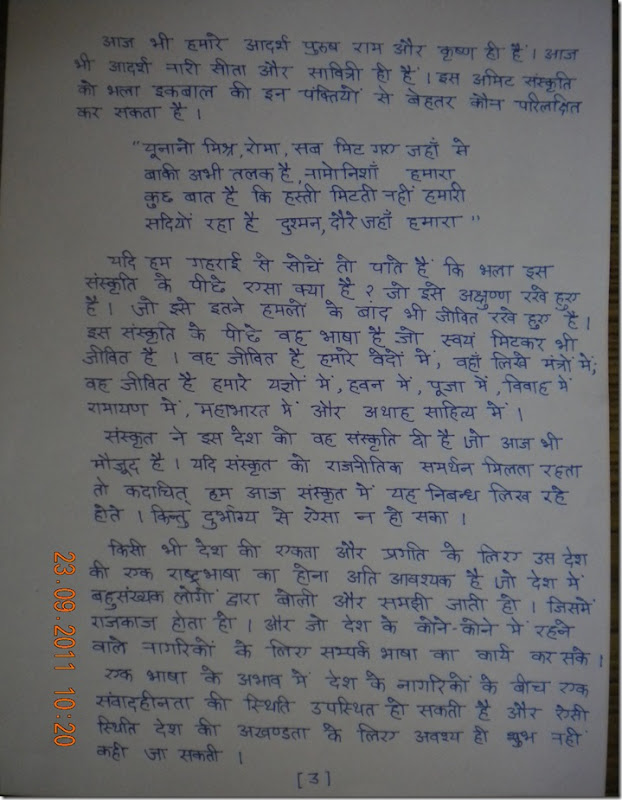 आज भी हमारे आदर्श पुरुष राम और कृष्ण ही हैं । आज
भी आदर्श नारी सीता और सावित्री ही हैं । इस अमिट संस्कृति
को भला इकबाल की इन पंक्तियों से बेहतर कौन परिलक्षित
कर सकता है ।
"यूनानो मिश्र, रोमा, सब मिट गए जहाँ से
बाकी अभी तलक है, नामो निशाँ हमारा
कुछ बात है कि हस्ती मिटती नहीं हमारी
सदियों रहा है दुश्मन, दौरे जहाँ हमारा "
यदि हम गहराई से सोचें तो पाते हैं कि भला इस
संस्कृति के पीछे एेसा क्या है ? जो इसे अक्षुण्ण रखे हुए
है । जो इसे इतने हमलों के बाद भी जीवित रखे हुए है ।
इस संस्कृति के पीछे वह भाषा है जो स्वयं मिटकर भी
जीवित है । वह जीवित है हमारे वेदों में, वहाँ लिखे मंत्रों में;
वह जीवित है हमारे यज्ञों में, हवन में, पूजा में, विवाह में
रामायण में, महाभारत में और अथाह साहित्य में ।
संस्कृत ने इस देश को वह संस्कृति दी है जो आज भी
मौजूद है । यदि संस्कृत को राजनीतिक समर्थन मिलता रहता
तो कदाचित् हम आज संस्कृत में यह निबन्ध लिख रहे
होते । किन्तु दुर्भाग्य से एेसा न हो सका ।
किसी भी देश की एकता और प्रगति के लिए उस देश
की एक राष्ट्रभाषा का होना अति आवश्यक है जो देश में
बहुसंख्यक लोगों द्वारा बोली और समझी जाती हो । जिसमें
राजकाज होता हो । और जो देश के कोने-कोने में रहने
वाले नागरिकों के लिए सम्पर्क भाषा का कार्य कर सके ।
एक भाषा के अभाव में देश के नागरिकों के बीच एक
संवादहीनता की स्थिति उपस्थित हो सकती है और ऐसी
स्थिति देश की अखण्डता के लिए अवश्य ही शुभ नहीं
कही जा सकती ।
[3]
23.09.2011 10:20